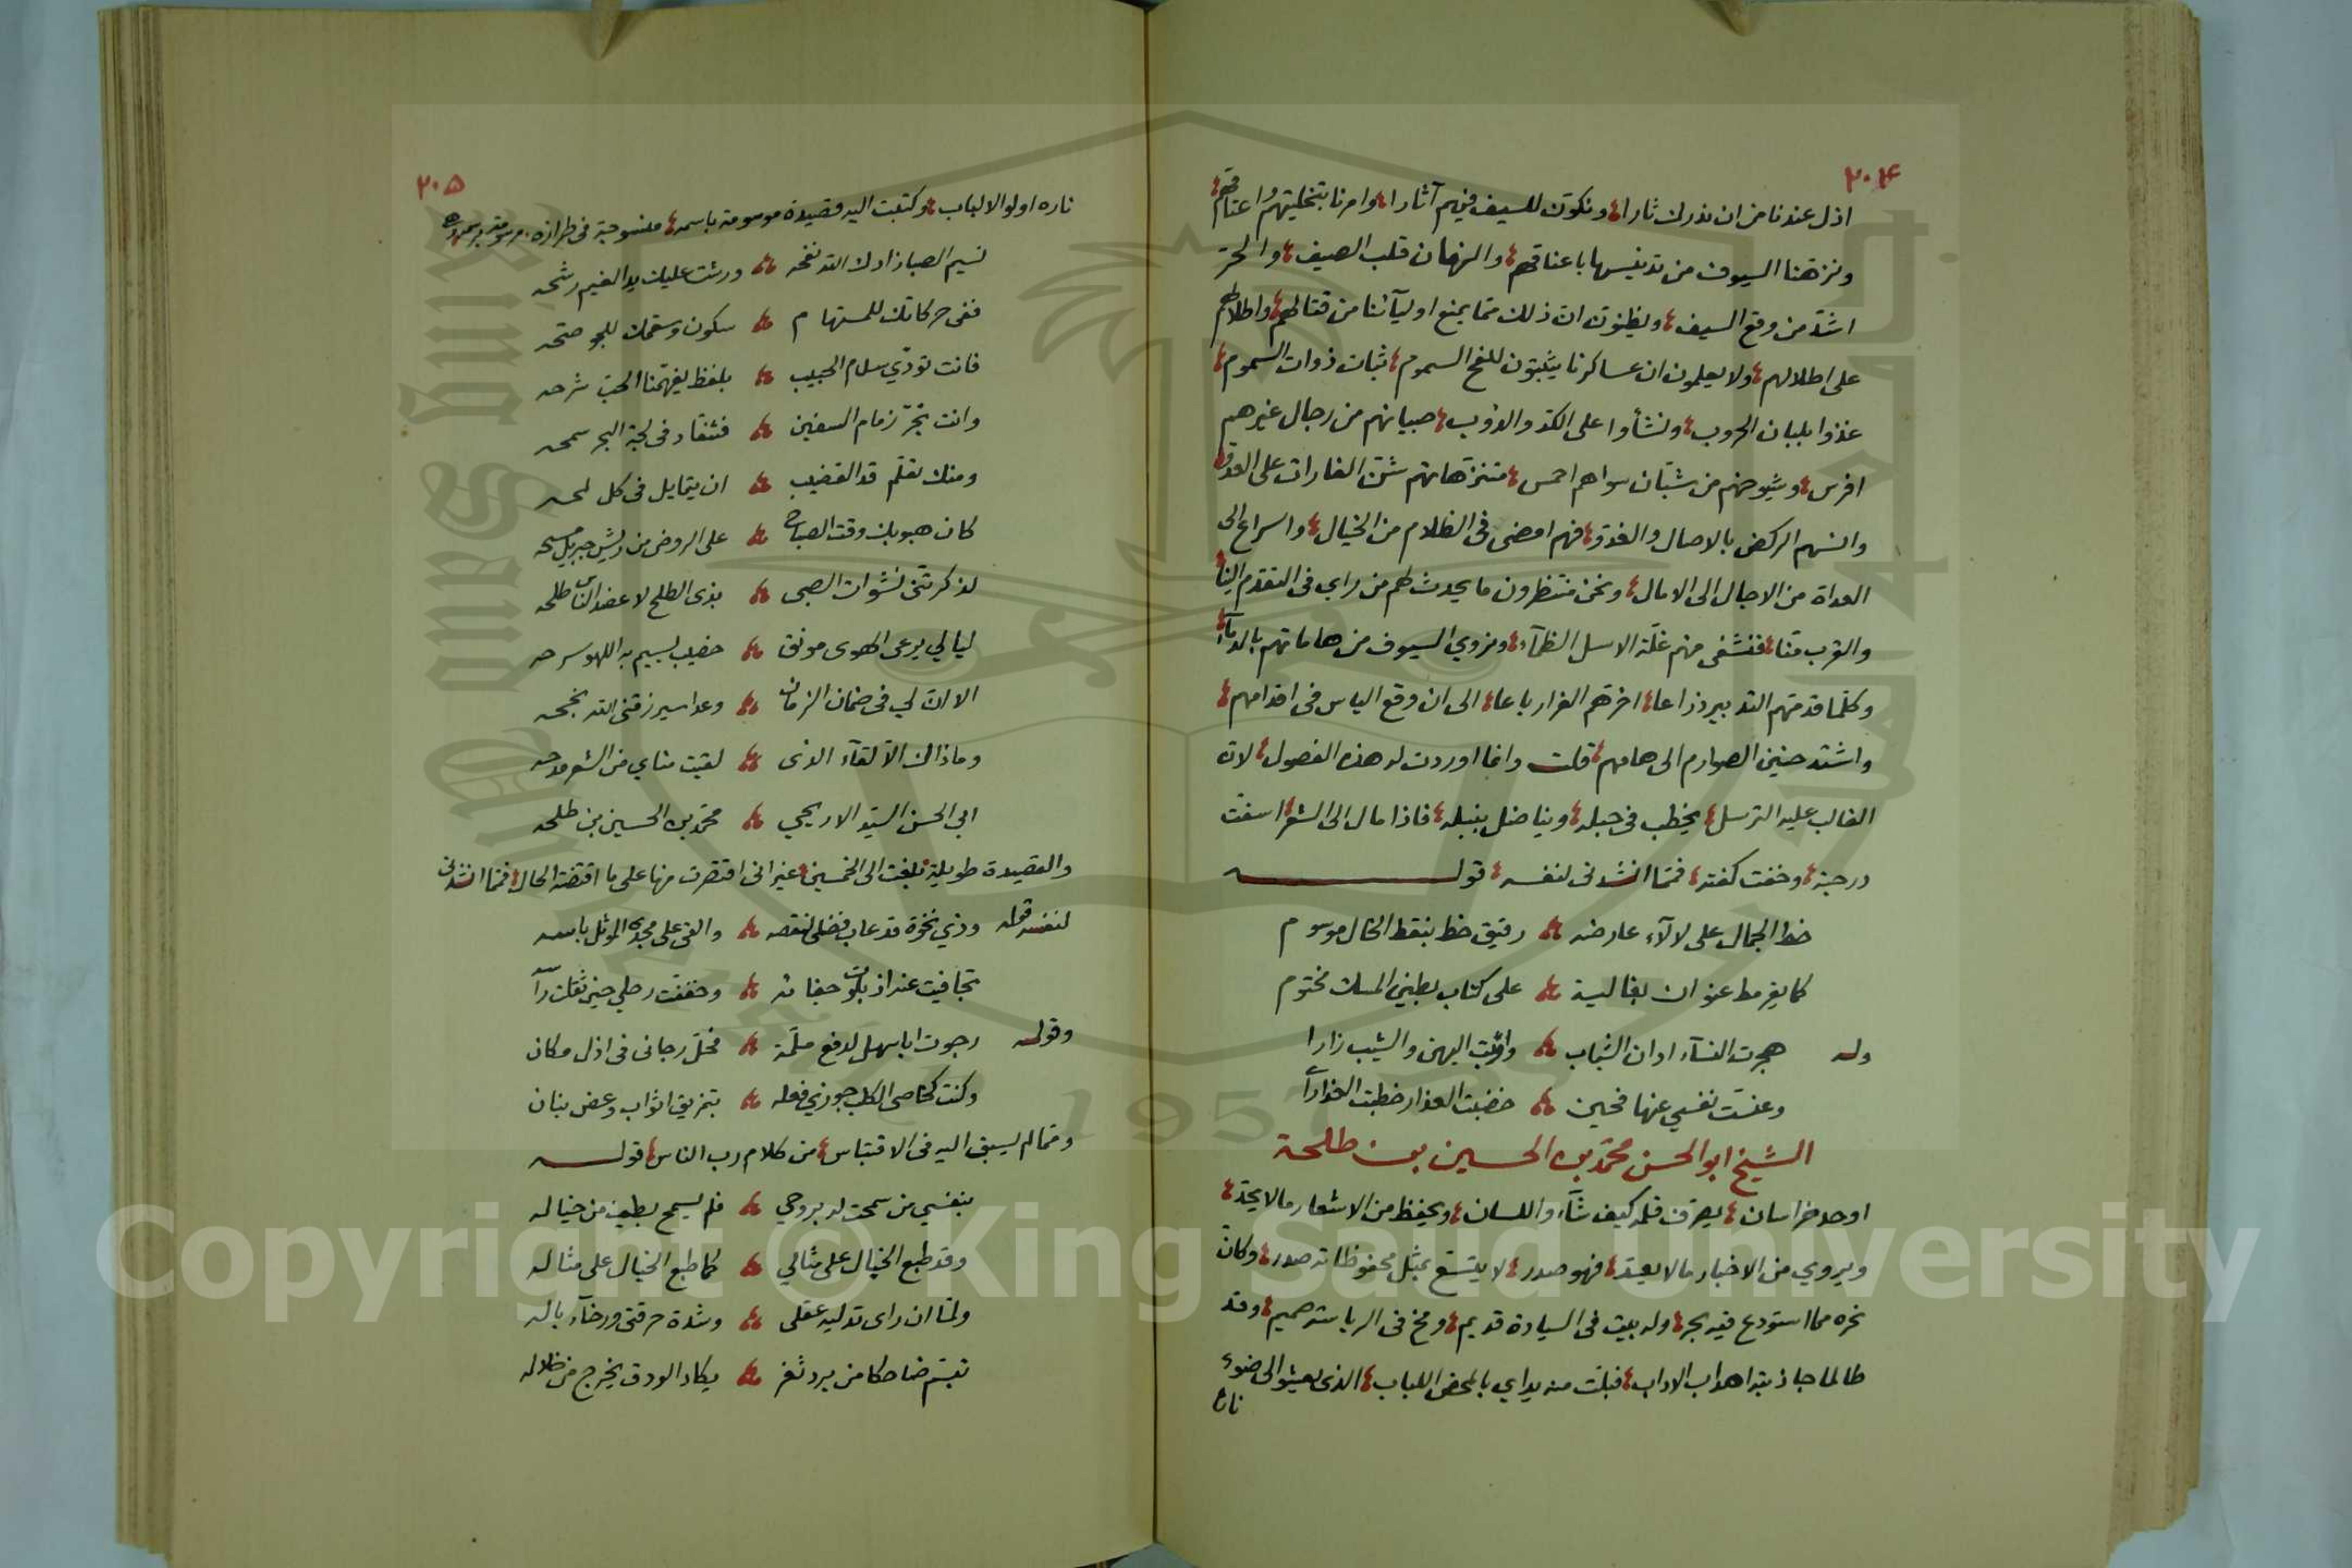 ٢٠٤
اذل عندنا من ان ندرك ثارا، ونكوّن للسيف فيهم آثارا، وامرنا بتخليتهم واعتاقهم
ونزّهنا السيوف من تدنيسها باعناقهم، والزمان قلب الصيف، والحرّ
اشدّ من وقع السيف، ويظنون انّ ذلك ممّا يمنع اوليآئنا من قتالهم، واطلالهم
على اطلالهم، ولا يعلمون ان عساكرنا يثبتون للفح السموم، ثبات ذوات السموم،
غذوا بلبان الحروب، ونشأوا على الكدّ والدؤب، صبيانهم من رجال غيرهم
افرس، وشيوخهم من شبّان سواهم احمس، متنزّهاتهم شنّ الغارات على العدوّ،
وانسهم الركض بالاصال والغدوّ، فهم امضى فى الظلام من الخيال، واسراع الى
العداة من الاجال الى الامال، ونحن منتظرون ما يحدث لهم من راي فى التقدّم الينا،
والقرب منّا، فنشفى منهم غلّة الاسل الظمآء، ونروي السيوف من هاماتهم بالدمآء،
وكلّما قدمتهم التدبير ذراعا، اخرّهم الفرار باعا، الى ان وقع الياس فى اقدامهم،
واشتد حنين الصوارم الى هامهم، قلت وانما اوردت له هذه الفصول، لان
الغالب عليه الترسل، يخطب فى حبله، ويناضل بنبله، فاذا مال الى الشعر، اسفّت
درجته، وخفت كفته، فممّا انشدنى لنفسه، قوله
خط الجمال على لالآء عارضه رقيق خط بنقط الخال موسوم
كما يقرمط عنوان بغالية على كتاب بطين المسك مختوم
وله هجرت النسآء اوان الشباب وانّبت اليهن والشيب زارا
وعنست نفسي عنها فحين خضبت العذار خطبت العذارآى
الشيخ ابو الحسن محمّد بن الحسين بن طلحة
اوحد خراسان، يصرف قلمه كيف شآء واللسان، ويحفظ من الاشعار ما لا يحدّ،
ويروي من الاخبار ما لا يعدّ، فهو صدر، لا يتسع بمثل محفوظاته صدر، وكانّ
نحره مما استودع فيه بحر، وله بيت فى السيادة قديم، ومخ فى الرياسة صميم، وقد
طالما جاذبته اهداب الاداب، فبلت منه يداي بالمحض اللباب، الذى يعشو الى ضوء
ناره
٢٠٥
ناره اولوا الالباب، وكتبت اليه قصيدة موسومة باسمه، منسوجة فى طرازه، مرسومة برسمه، وهي
نسيم الصبا زادك الله نفحه ورشت عليك يد الغيم رشحه
ففى حركاتك للمستهام سكون وسقمك للجو صحّه
فانت تودّي سلام الحبيب بلفظ يفهّمنا الحبّ شرحه
وانت تجرّ زمام السفين فتنقاد فى لجة البحر سمحه
ومنك تعلّم قد القضيب ان يتمايل فى كل لمحه
كان هبوبك وقت الصباح على الروض من ريش جبريل مسحه
لذكرتنى نشوات الصبى بذى الطلح لا عضد الناس طلحه
ليالي يرعى الهوى مونق خضيب نسيم به اللهو سرحه
الا انّ لي فى ضمان الزمان وعدا سيرزقنى الله نجحه
وماذاك الا لقآء الذى لقيت مناي من الشعر مدحه
ابي الحسن السيّد الاريحي محمّد بن الحسين بن طلحه
والقصيدة طويلة بلغت الى الخمسين، غير انى اقتصرت منها على ما اقتضته الحال، فممّا انشدنى
لنفسه قوله وذي نخوة قد عاب فضلى لنقصه والقى على مجدى الموثل باسه
تجافيت عنه اذ بلوت جفائه وخففت رحلي حين ثقلت رآسه
وقوله رجوت ابا سهل لدفع ملمّة فحلّ رجائى فى اذل مكان
وكنت كخاصى الكلب جوزي فعله بتمزيق اثواب وعض بنان
وممّا لم يسبق اليه فى الاقتباس، من كلام رب الناس، قوله
بنفسي من سمحت له بروحي فلم يسمح بطيف من خياله
وقد طبع الخيال على مثالي كما طبع الخيال على مثاله
ولمّا ان راى تدليه عقلى وشدة حرقتى ورخآء باله
تبسّم ضاحكا من برد ثغر يكاد الودق يخرج من خلاله
Copyright © King Saud University
1957